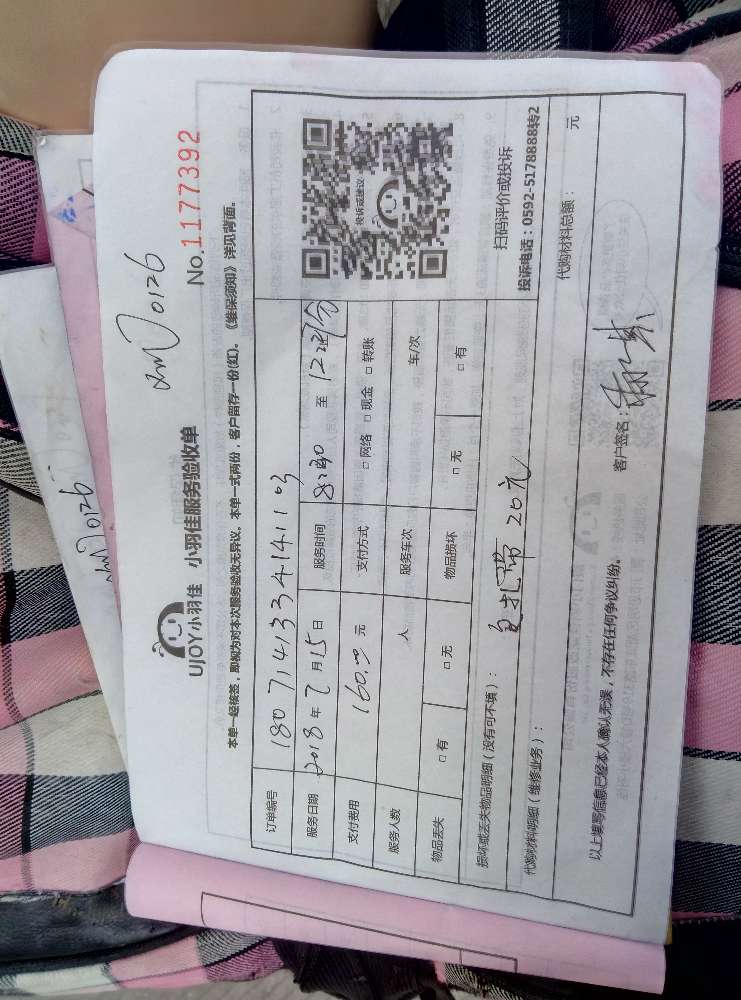 0126
UJOY小羽佳 小羽佳服务验收单
No.1177392
本单一经核签，即视为对本次服务验收无异议。本单一式两份，客户留存一份(红)。《维保须知》详见背面。
订单编号 180714133414110
服务日期 2018年7月15日 服务时间 8:30 至
支付费用 160.0元 支付方式 □网络 □现金 □转账
服务人数 人 服务车次 车/次
物品丢失 □有 □无 物品损坏 □无 □有
投诉或建议
扫码评价或投诉
投诉电话：0592-5178888转2
损坏或丢失物品明细（没有可不填）：
20元
代购材料明细（维修业务）：
代购材料总额： 元
以上填写信息已经本人确认无误，不存在任何争议纠纷。 客户签名：
0126